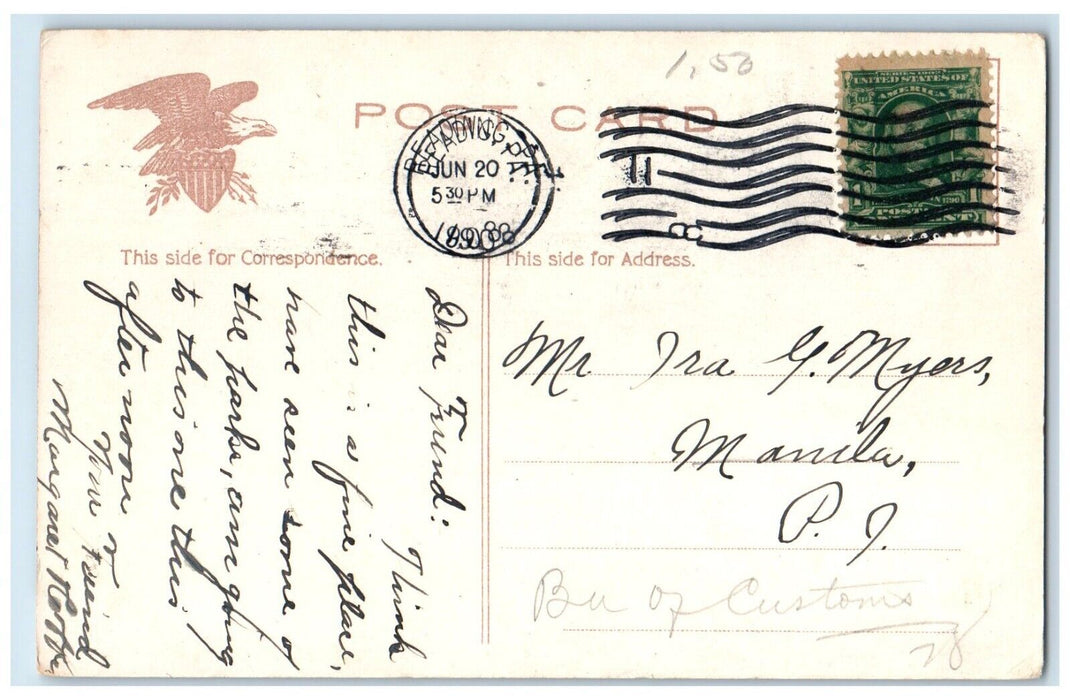 1.50
POST CARD
READING, PA.
JUN 20
5 30 PM
1908
11
SERIES 1902
UNITED STATES OF
AMERICA
POSTAGE
This side for Correspondence.
This side for Address.
Dear Friend:
Think
this is a fine place,
have seen some of
the parks, am going
to this one this
after noon
Your Friend
Margaret
Mr Ira G. Myers,
Manila,
P. I.
Bu of Customs